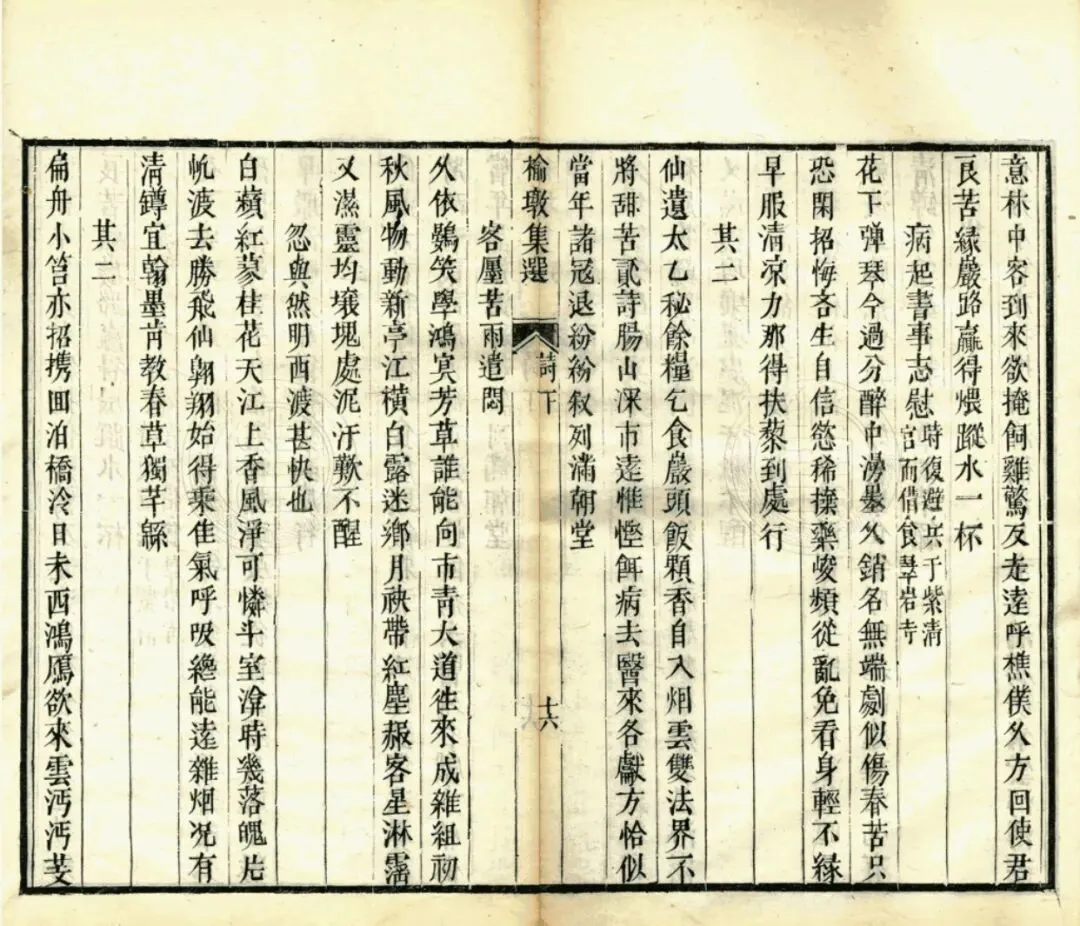 意林中客到來欲掩飼雞驚反走遠呼樵僕久方回使君
良苦緣巖路贏得煨蹤水一杯
病起書事志慰時復避兵于紫清
宮而借食翠岩寺
花下彈琴今過分醉中湧墨久銷名無端劇似傷春苦只
恐閑招悔吝生自信慾稀攘藥峻頻從亂免看身輕不緣
早服清凉力那得扶藜到處行
其二
仙遺太乙秘餘糧乞食巖頭飯顆香自入烟雲雙法界不
將甜苦貳詩腸山深市遠惟慳餌病去醫來各獻方恰似
當年諸冠退紛紛叙列滿朝堂
榆墩集選
詩下
十六
客廛苦雨遣悶
久依鷃笑學鴻㝠芳草誰能向市青大道徃來成雜組初
秋風物動新亭江橫白露迷鄉月袂帶紅塵赧客星淋霤
又濕靈均壤塊處泥汙歎不醒
忽與然明西渡甚快也
白蘋紅蓼桂花天江上香風淨可憐斗室㳙時幾落魄片
帆渡去勝飛仙翺翔始得乘佳氣呼吸纔能遠雜烟况有
清鐏宜翰墨肯教春草獨芊緜
其二
扁舟小笤亦招携囬泊橋泠日未西鴻鴈欲來雲沔沔芰